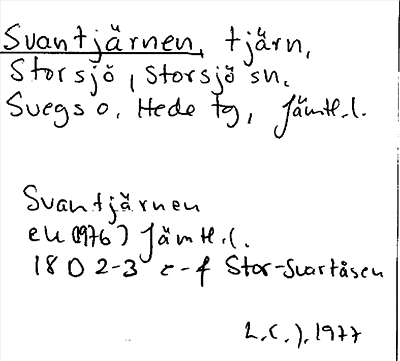 Svantjärnen, tjärn,
Storsjö, Storsjö sn.
Svegs o. Hede tg, Jämtl.l.
Svantjärnen
ek (1976) Jämtl.l.
18 D 2-3 e-f Stor-Svartåsen
L.C.J. 1977